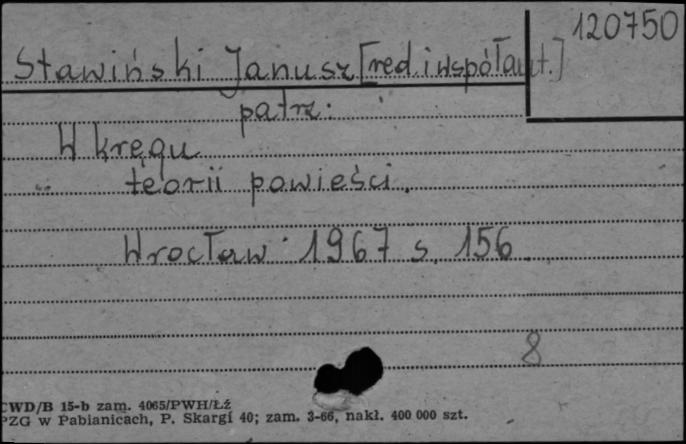 120750
Sławiński Janusz [red. i współaut.]
patrz:
W kręgu
teorii powieści.
Wrocław 1967 s. 156.
8
CWD/B 15-b zam. 4065/PWH/Łź
PZG w Pabianicach, P. Skargi 40; zam. 3-66, nakł. 400 000 szt.